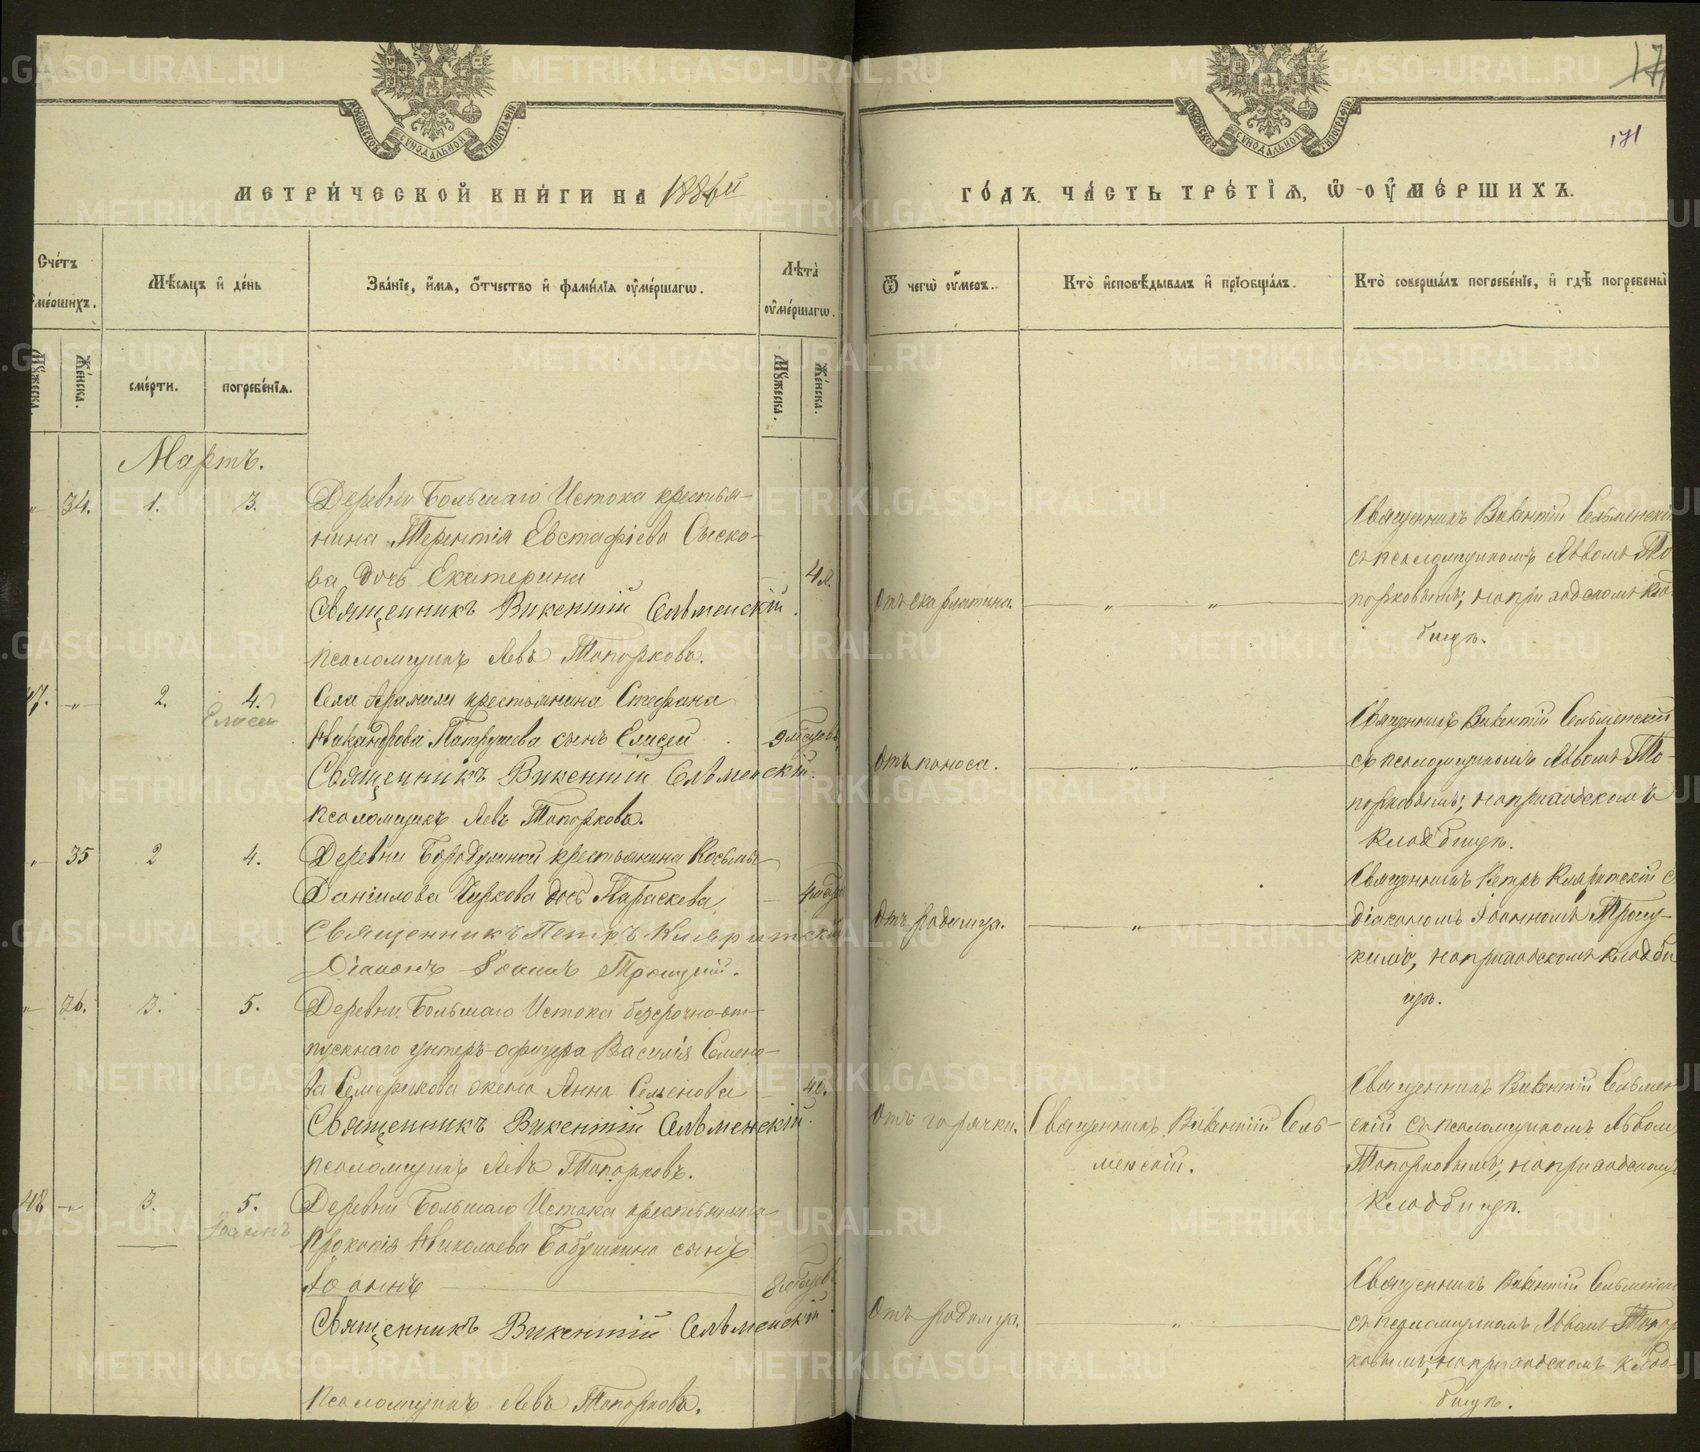 17
171
МЕТРИ́ЧЕСКОЙ КНИ́ГИ НА 1886й
ГО́ДЪ. ЧА́СТЬ ТРЕ́ТІЯ, Ѡ ОУМЕ́РШИХЪ.
Сче́тъ
Мѣ́сяцъ и де́нь
Зва́ніе, и́мя, о́тчество и фами́лія оуме́ршагѡ.
Лѣта̀
оуме́ршагѡ.
Ѿ чегѡ̀ оу́меръ.
Кто̀ исповѣ́дывалъ и пріобща́лъ.
Кто̀ соверша́лъ погребе́ніе, и гдѣ̀ погребены̀
Же́нска.
сме́рти.
погребе́нія.
Му́жеска.
Же́нска.
Мартъ.
34. 1. 3. Деревни Большаго Истока крестья-
нина Терентія Евстафіева Сыско-
ва дочь Екатерина 4 л.
Священникъ Викентій Сельменскій.
псаломщикъ Левъ Топорковъ.
Отъ скарлатины.
Священникъ Викентій Сельменскі
съ псаломщикомъ Львомъ То
порковымъ, на приходскомъ клад
бищѣ.
47. 2. 4. Села Арамили крестьянина Стефана
Елисей
Никандрова Патрушева сынъ Елисей 9 мѣсяцевъ
Священникъ Викентій Сельменскій.
псаломщикъ Левъ Топорковъ.
Отъ поноса.
Священникъ Викентій Сельменскій
съ псаломщикомъ Львомъ То-
порковымъ, на приходскомъ
кладбищѣ.
35 2 4. Деревни Бородулиной крестьянина Косьмы
Даніилова Чиркова дочь Параскева
Священникъ Петръ
Діаконъ Іоаннъ Троицкій.
Отъ родимца.
Священникъ Петръ с
діакономъ Іоанномъ Троиц-
кимъ, на приходскомъ кладби
щѣ.
36. 3. 5. Деревни Большаго Истока безсрочно-от-
пускнаго унтеръ-офицера Василія Семено-
ва Семерикова жена Анна Семенова
Священникъ Викентій Сельменскій.
псаломщикъ Левъ Топорковъ.
Отъ горячки.
Священникъ Викентій Сель-
менскій.
Священникъ Викентій Сельмен
скій съ псаломщикомъ Львом
Топорковымъ, на приходскомъ
кладбищѣ.
48 3. 5. Деревни Большаго Истока крестьянина
Іоаннъ
Прокопія Николаева Бабушкина сынъ
Іоаннъ
Священникъ Викентій Сельменскій
псаломщикъ Левъ Топорковъ.
Отъ родимца.
Священникъ Викентій Сельменск
съ псаломщикомъ Львомъ Топор
ковымъ, на приходскомъ клад-
бищѣ.
METRIKI.GASO-URAL.RU